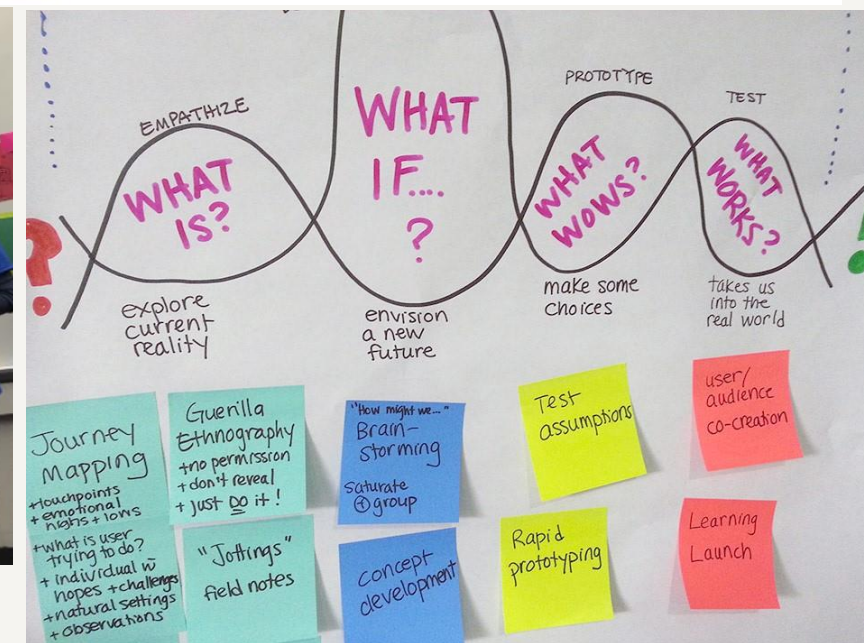 EMPATHIZE
WHAT
IS?
explore
current
reality
WHAT
IF....
?
envision
a new
future
PROTOTYPE
WHAT
WOWS?
make some
choices
TEST
WHAT
WORKS?
takes us
into the
real world
?
Journey
Mapping
+touchpoints
+ emotional
highs + lows
+what is user
trying to do?
+ individual w̄
hopes + challenges
+natural settings
+ observations
Guerilla
Ethnography
+no permission
+ don't reveal
+ just DO it!
"Jottings"
field notes
"How might we..."
Brain-
storming
saturate
+ group
concept
development
Test
assumptions
Rapid
prototyping
user/
audience
co-creation
Learning
Launch